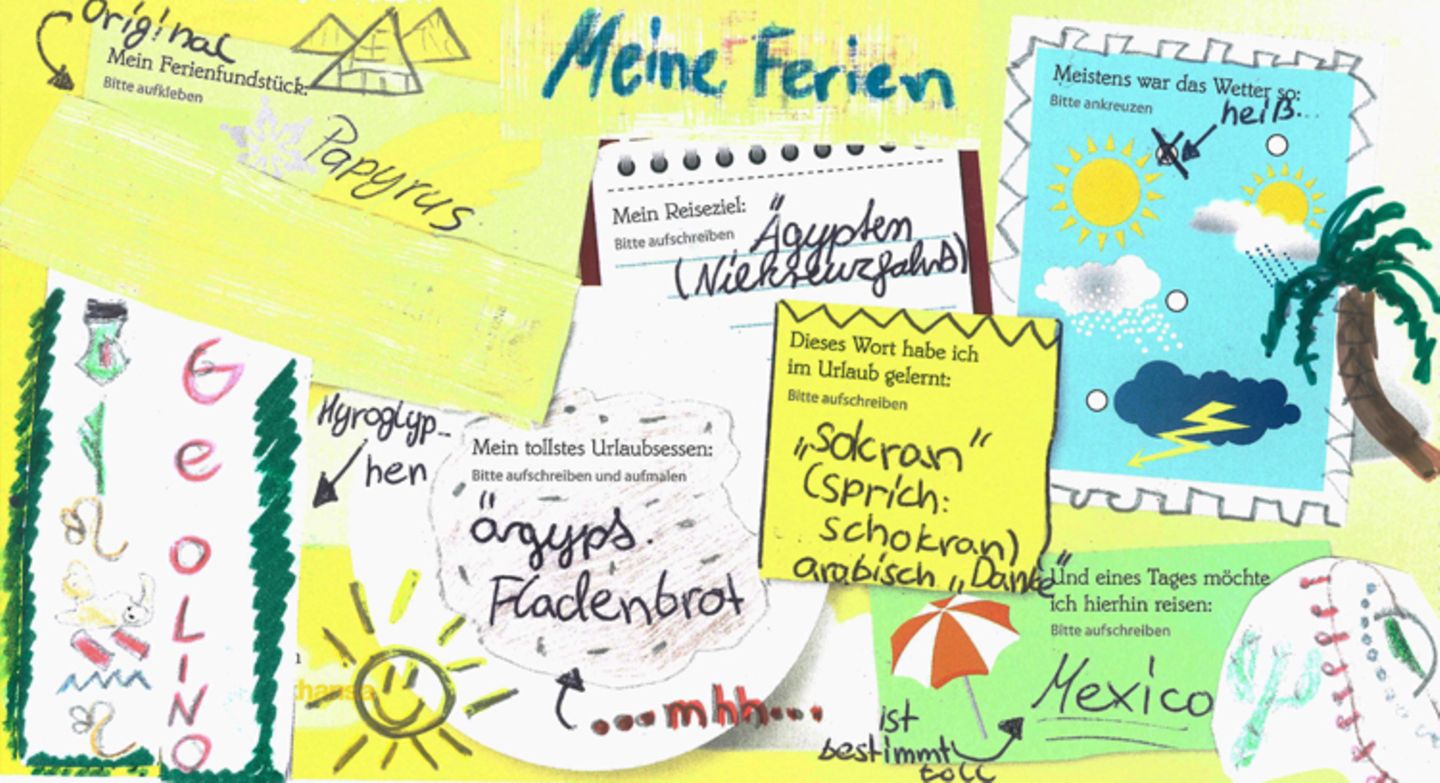 Original
Mein Ferienfundstück:
Bitte aufkleben
Papyrus
Meine Ferien
Mein Reiseziel:
Bitte aufschreiben
Ägypten
(Nielkreuzfahrt)
Meistens war das Wetter so:
Bitte ankreuzen
heiß...
Dieses Wort habe ich
im Urlaub gelernt:
Bitte aufschreiben
„Sokran“
(sprich:
schokran)
arabisch „Danke“
Hyroglyp-
hen
GeoLINO
Mein tollstes Urlaubsessen:
Bitte aufschreiben und aufmalen
ägyps.
Fladenbrot
...mhh...
Und eines Tages möchte
ich hierhin reisen:
Bitte aufschreiben
Mexico
ist
bestimmt
toll